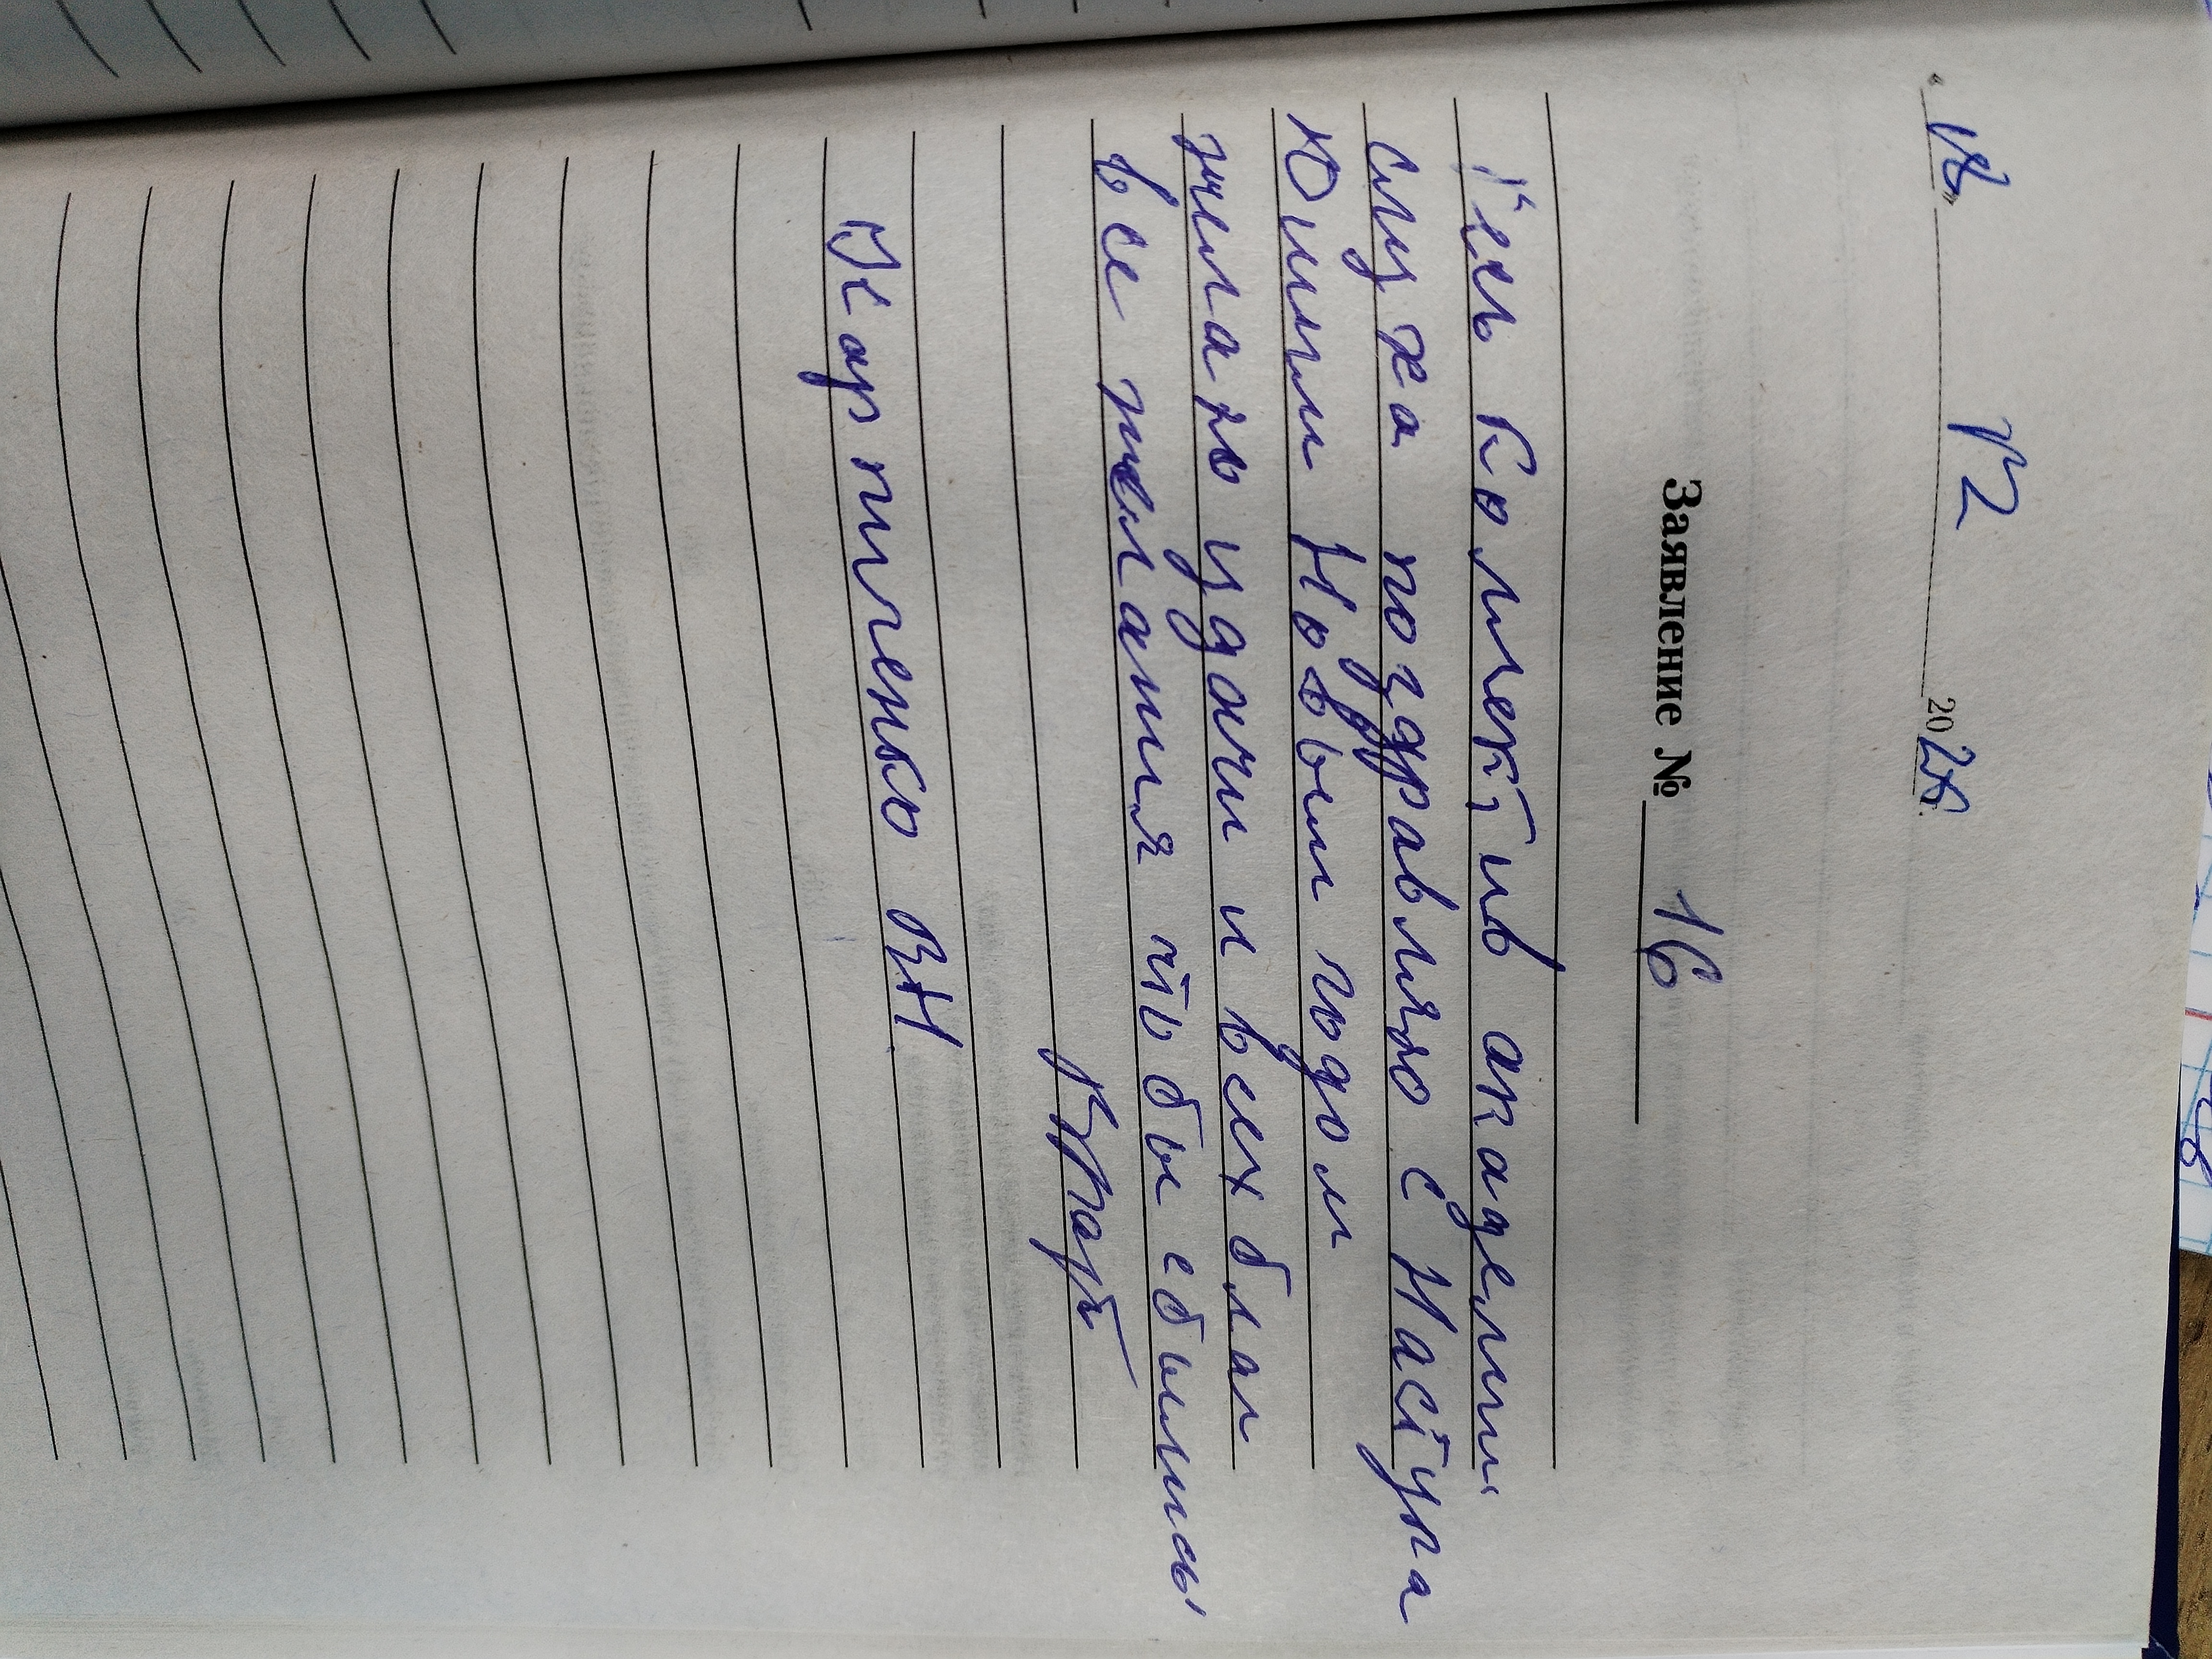 « 18 » 12 2025 г.
Заявление № 16
Весь коллектив академии
слуха поздравляю с Наступа
Ющим Новым годом
желаю удачи и всех благ
все желания чтобы сбылись
Карпиченко ВН.